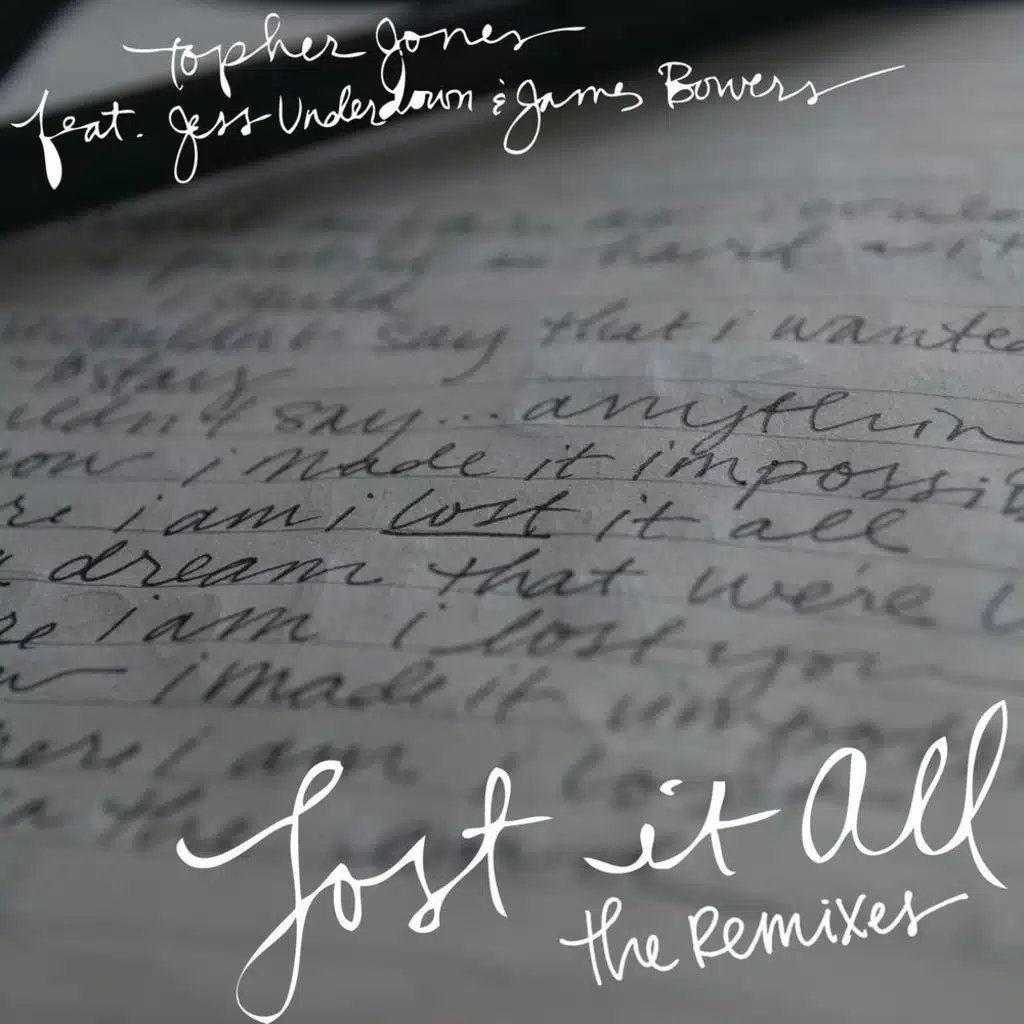 Topher Jones
feat. Jess Underdown & James Bowers
hard
i could
wouldn't say that i wanted
to stay
say... anythin
i made it impossib
i am i lost it all
dream that we're
i am i lost you
i made it
i am i
in the
Lost it All
the Remixes